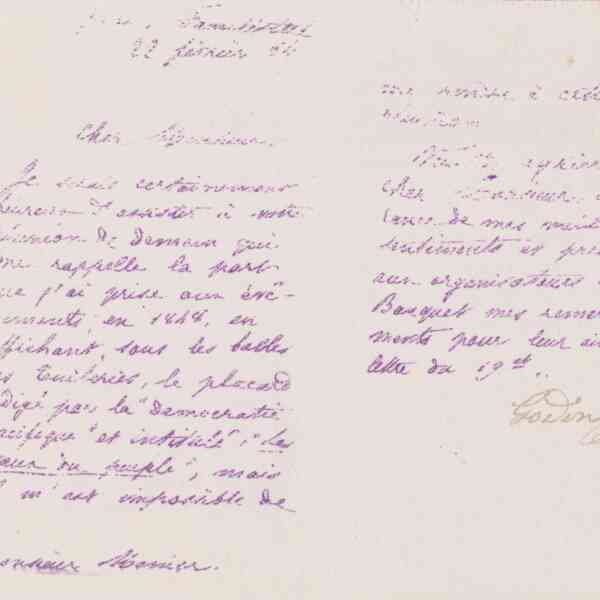 22 février
Cher Monsieur,
Je serais certainement
heureux d'assister à votre
réunion de demain qui
me rappelle la part
que j'ai prise aux évè-
nements, en 1848, en
affichant, sous les balles
des Tuileries, le placard
rédigé par la "démocratie
pacifique" et intitulé: "les
du peuple", mais
il m'est impossible de
Monsieur Monier.
me rendre à cette
réunion.
agréer
cher Monsieur,
de mes meil
sentiments et
aux organisateurs
Banquet mes remer
ments pour leur
lettre du 19 ct.
Godin